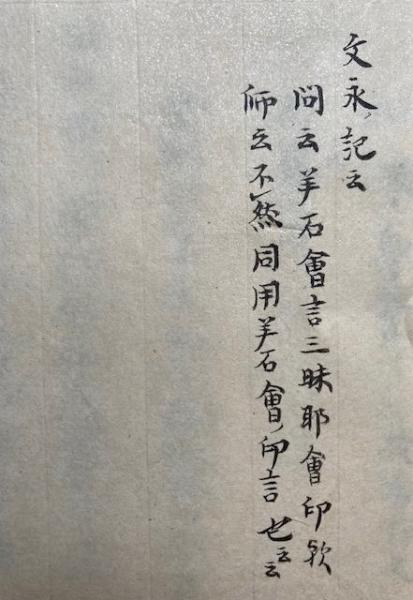 文永記云
問云羊石會言三昧耶會印歟
師云不然同用羊石會印言也云云